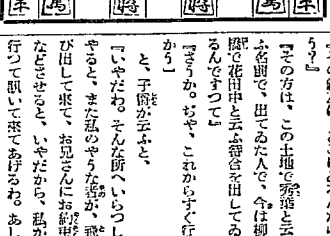 う？』
『その方は、この土地で秀葉と云
ふ名前で、出てゐた人で、今は柳
橋で花田中と云ふ待合を出してゐ
るんですつて』
『さうか。ぢや、これからすぐ行
かう』
と、子僧が云ふと、
『いやだわ。そんな所へいらつし
やると、また私のやうな者が、飛
び出して來て、お兄さんにお約束
などさせると、いやだから、私が
行つて訊いて來てあげるわ。あし